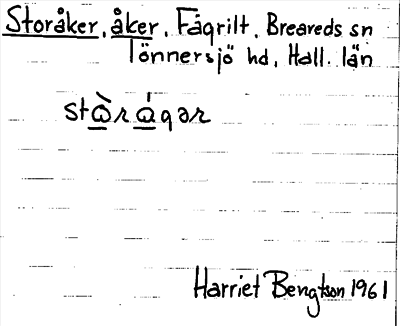 Storåker, åker, Fägrilt, Breareds sn
Tönnersjö hd, Hall. län
stɷ̀rágər
Harriet Bengtson 1961